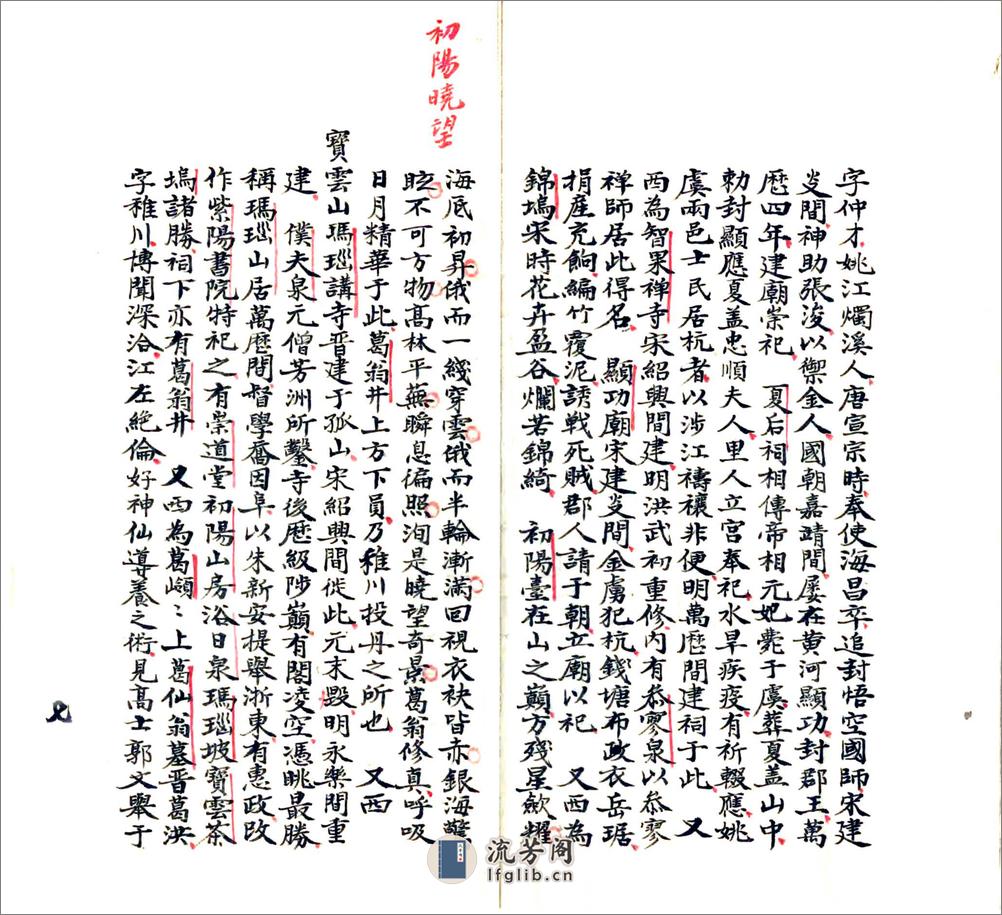 字仲才姚江燭溪人唐宣宗時奉使海昌卒追封悟空國師宋建
炎間神助張浚以禦金人國朝嘉靖間屡在黄河顯功封郡王萬
歷四年建廟崇祀 夏后祠相傳帝相元妃薨于虞葬夏盖山中
勅封顯應夏盖忠順夫人里人立宫奉祀水旱疾疫有祈輟應姚
虞兩邑士民居杭者以涉江禱禳非便明萬歷間建祠于此 又
西為智果禅寺宋紹興間建明洪武初重修内有叅寥泉以叅寥
禅師居此得名 顯功廟宋建炎間金虜犯杭錢塘布政衣岳琚
捐産充餉編竹覆泥誘戰死賊郡人請于朝立廟以祀 又西為
錦塢宋時花卉盈谷爛若錦綺 初陽臺在山之巔方殘星歛耀
初陽曉望
海底初昇俄而一綫穿雲俄而半輪漸滿回視衣袂皆赤銀海驚
眩不可方物高林平蕪瞬息徧照洵是曉望奇景葛翁修真呼吸
日月精華于此葛翁井上方下員乃稚川投丹之所也 又西
寶雲山瑪瑙講寺晋建于孤山宋紹興間徙此元末毀明永樂間重
建 僕夫泉元僧芳洲所鑿寺後歷級陟巔有閣凌空憑眺最勝
稱瑪瑙山居萬歷間督學喬因阜以朱新安提舉浙東有惠政改
作紫陽書院特祀之有崇道堂初陽山房浴日泉瑪瑙坡寶雲茶
塢諸勝祠下亦有葛翁井 又西為葛嶺〻上葛仙翁墓晋葛洪
字稚川博聞深洽江左絶倫好神仙導養之術見高士郭文舉于
流芳阁
lfglib.cn